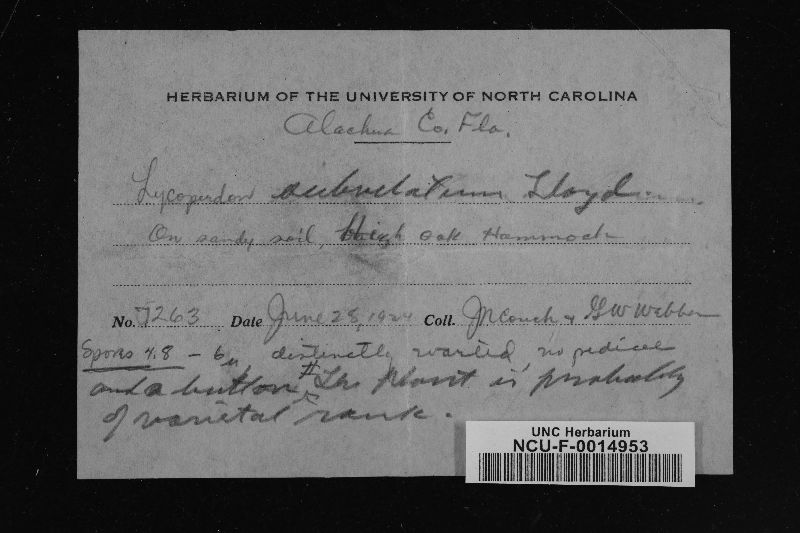 HERBARIUM OF THE UNIVERSITY OF NORTH CAROLINA
Alachua Co. Fla.
Lycoperdon subvelatum Lloyd
On sandy soil, high oak Hammock
No. 7263 Date June 28, 1924 Coll. JN Couch & GW Weber
Spores 4.8 – 6µ distinctly warted, no pedicel
and a button # The plant is probably
of varietal rank.
UNC Herbarium
NCU-F-0014953